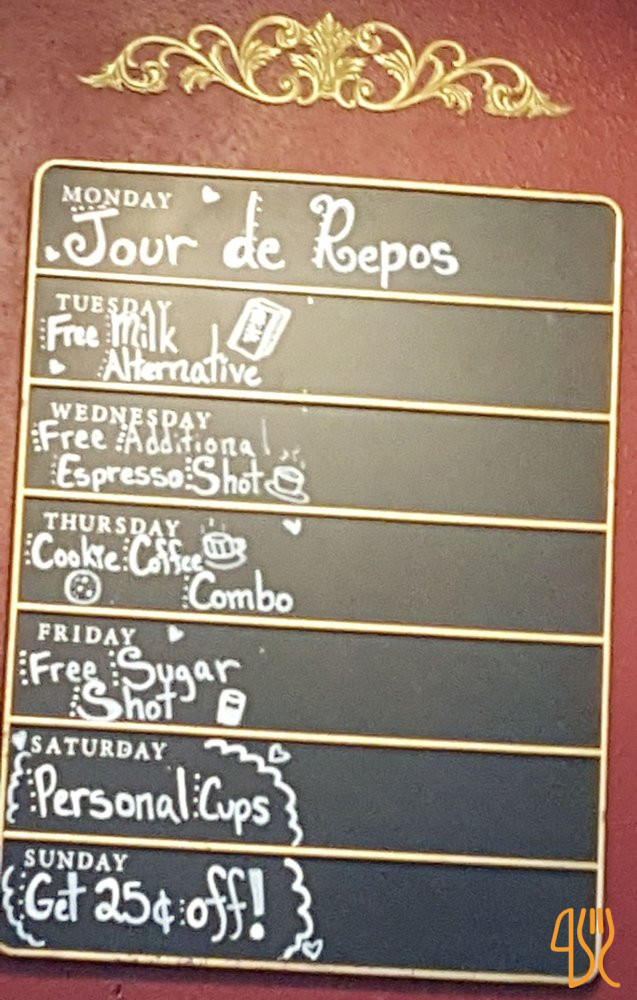 MONDAY
Jour de Repos
TUESDAY
Free Milk
Alternative
WEDNESDAY
Free Additional
Espresso Shot
THURSDAY
Cookie Coffee
Combo
FRIDAY
Free Sugar
Shot
SATURDAY
Personal Cups
SUNDAY
Get 25¢ off!